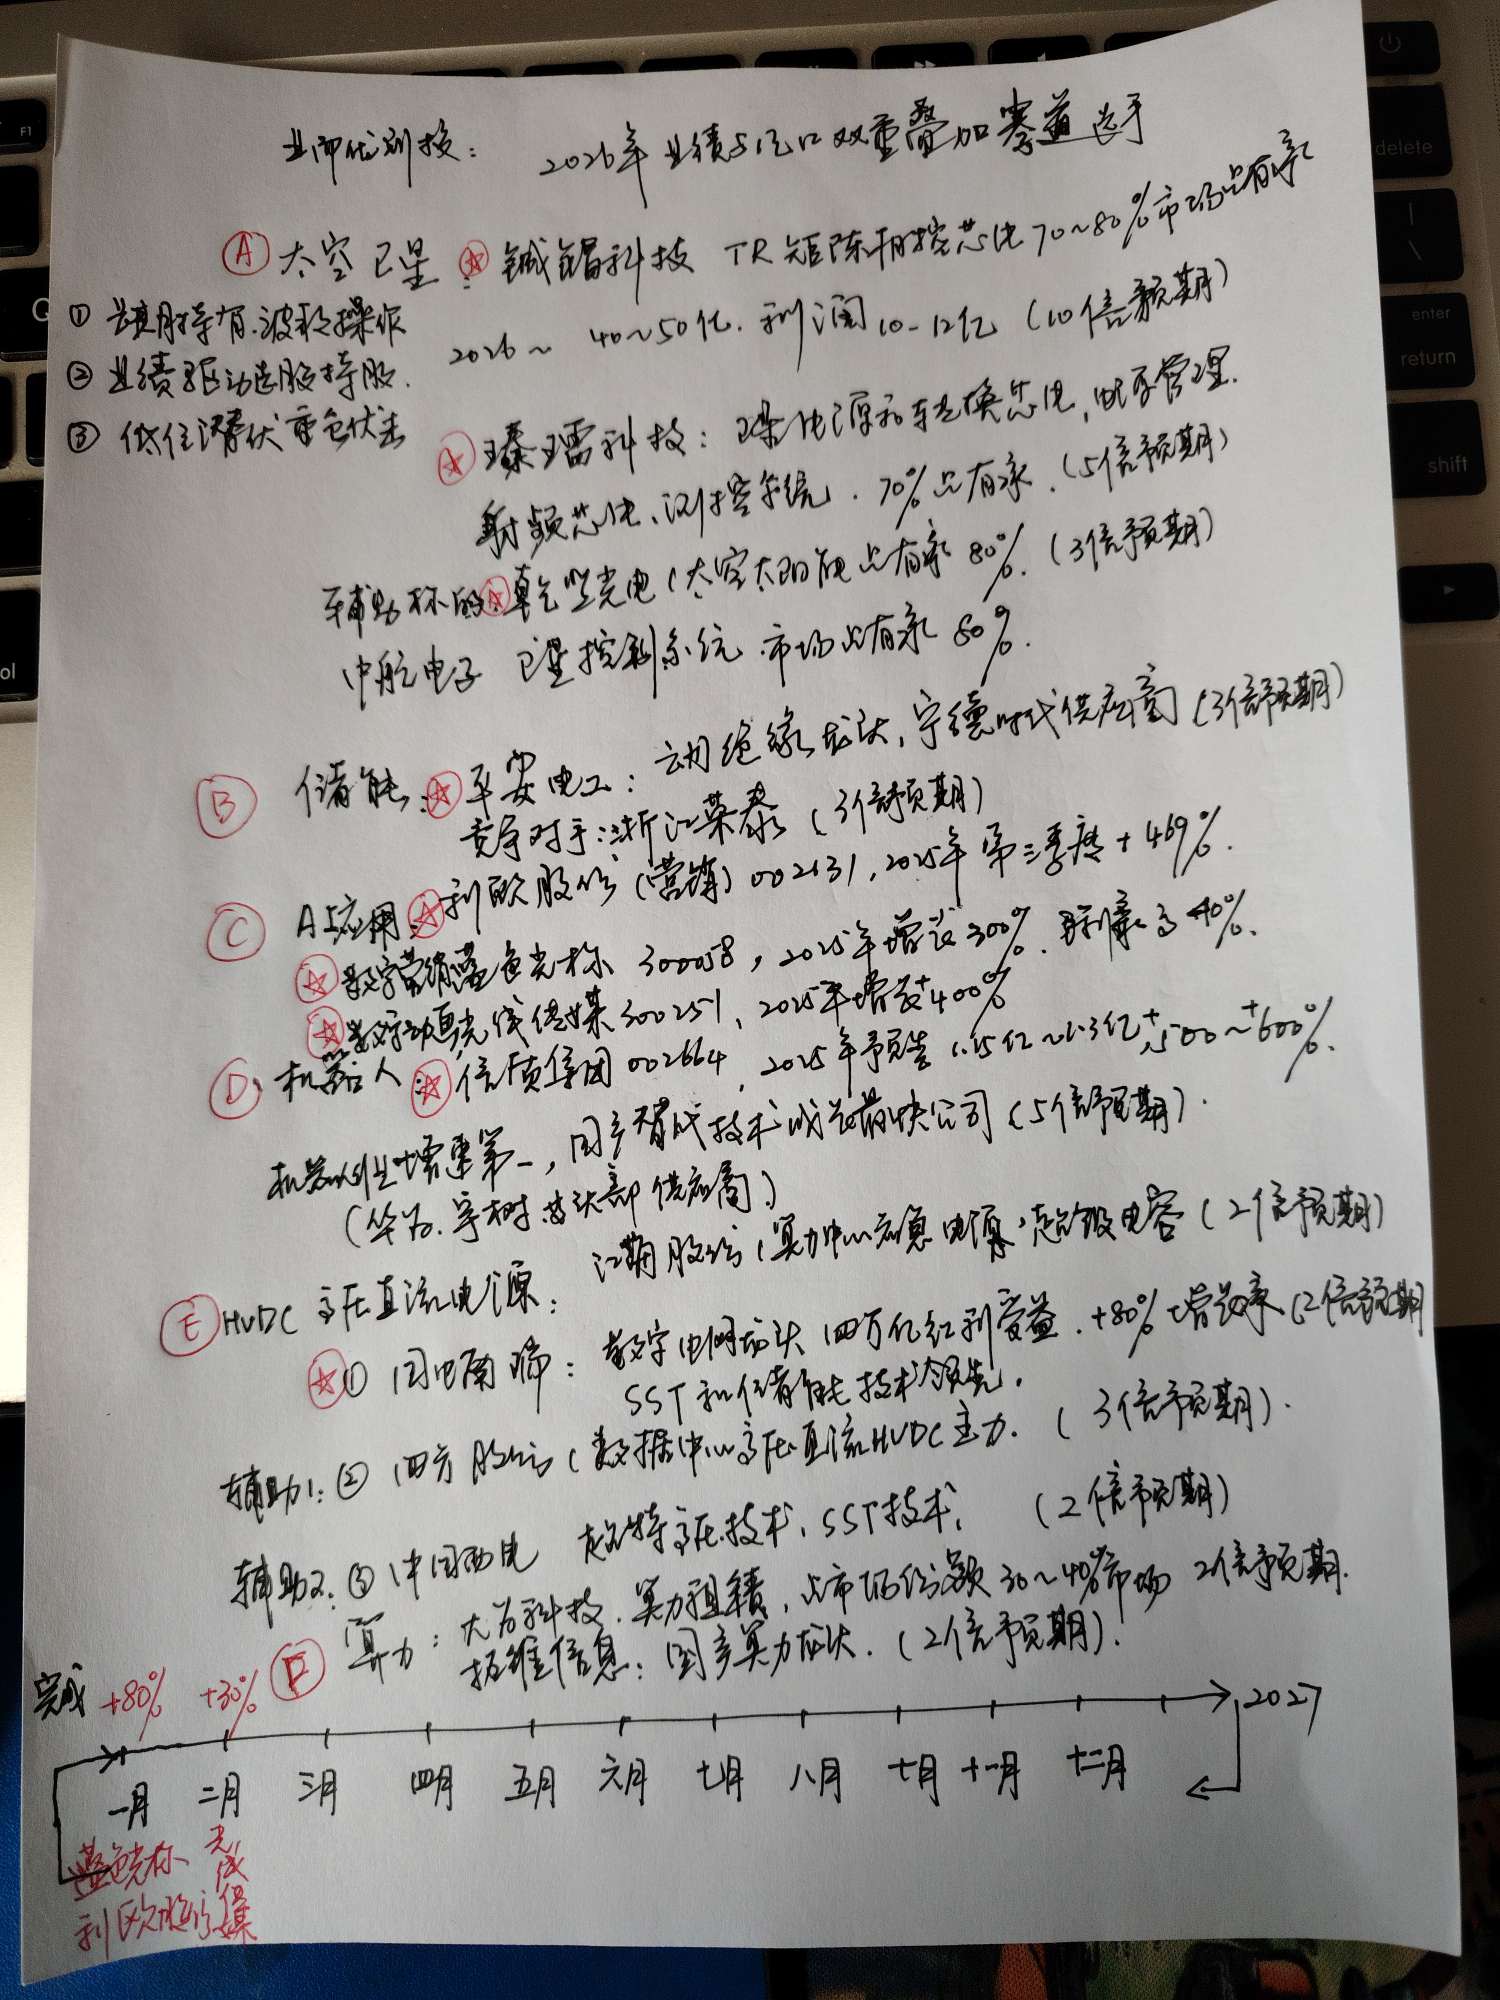 2026年 业绩与风口双重叠加赛道选手
Ⓐ 太空卫星：☆ 铖昌科技 TR矩阵相控芯片 70~80%市场占有率
① 长期持有.波段操作
2026~ 40~50亿. 利润10-12亿 (10倍预期)
② 业绩驱动选股持股.
③ 低位潜伏重仓伏击
☆ 臻镭科技: 卫星电源和转换芯片, 电源管理.
射频芯片、测控系统. 70%占有率. (5倍预期)
辅助标的☆乾照光电 (太空太阳能占有率80%. (3倍预期)
中航电子 卫星控制系统 市场占有率80%.
Ⓑ 储能：☆ 平安电工: 云母绝缘龙头, 宁德时代供应商 (3倍预期)
竞争对手: 浙江荣泰 (3倍预期)
Ⓒ AI应用：☆ 利欧股份 (营销) 002131, 2025年第三季度+469%.
☆ 数字营销蓝色光标 300058, 2025年增长300%. 胜利率高40%.
☆ 数字动画光线传媒300251, 2025年增长+400%
Ⓓ. 机器人：☆ 信质集团 002664, 2025年预告 1.15亿~1.3亿, +500~+600%.
机器人行业增速第一, 国产替代技术成长最快公司 (5倍预期).
(华为.宇树.等头部供应商)
Ⓔ HVDC 高压直流电源: 江海股份 (算力中心应急电源, 超级电容 (2倍预期)
☆① 国电南瑞: 数字电网龙头 四万亿红利受益. +80%增长率. (2倍预期
SST和储能技术领先.
辅助1: ② 四方股份 (数据中心高压直流HVDC主力. (3倍预期).
辅助2: ③ 中国西电 超特高压技术, SST技术, (2倍预期)
Ⓕ 算力: 大为科技. 算力租赁, 占市场份额30~40%市场 2倍预期.
拓维信息: 国产算力龙头. (2倍预期).
完成 +80% +30%
2027
一月 二月 三月 四月 五月 六月 七月 八月 十月 十一月 十二月
蓝色光标 光线传媒
利欧股份